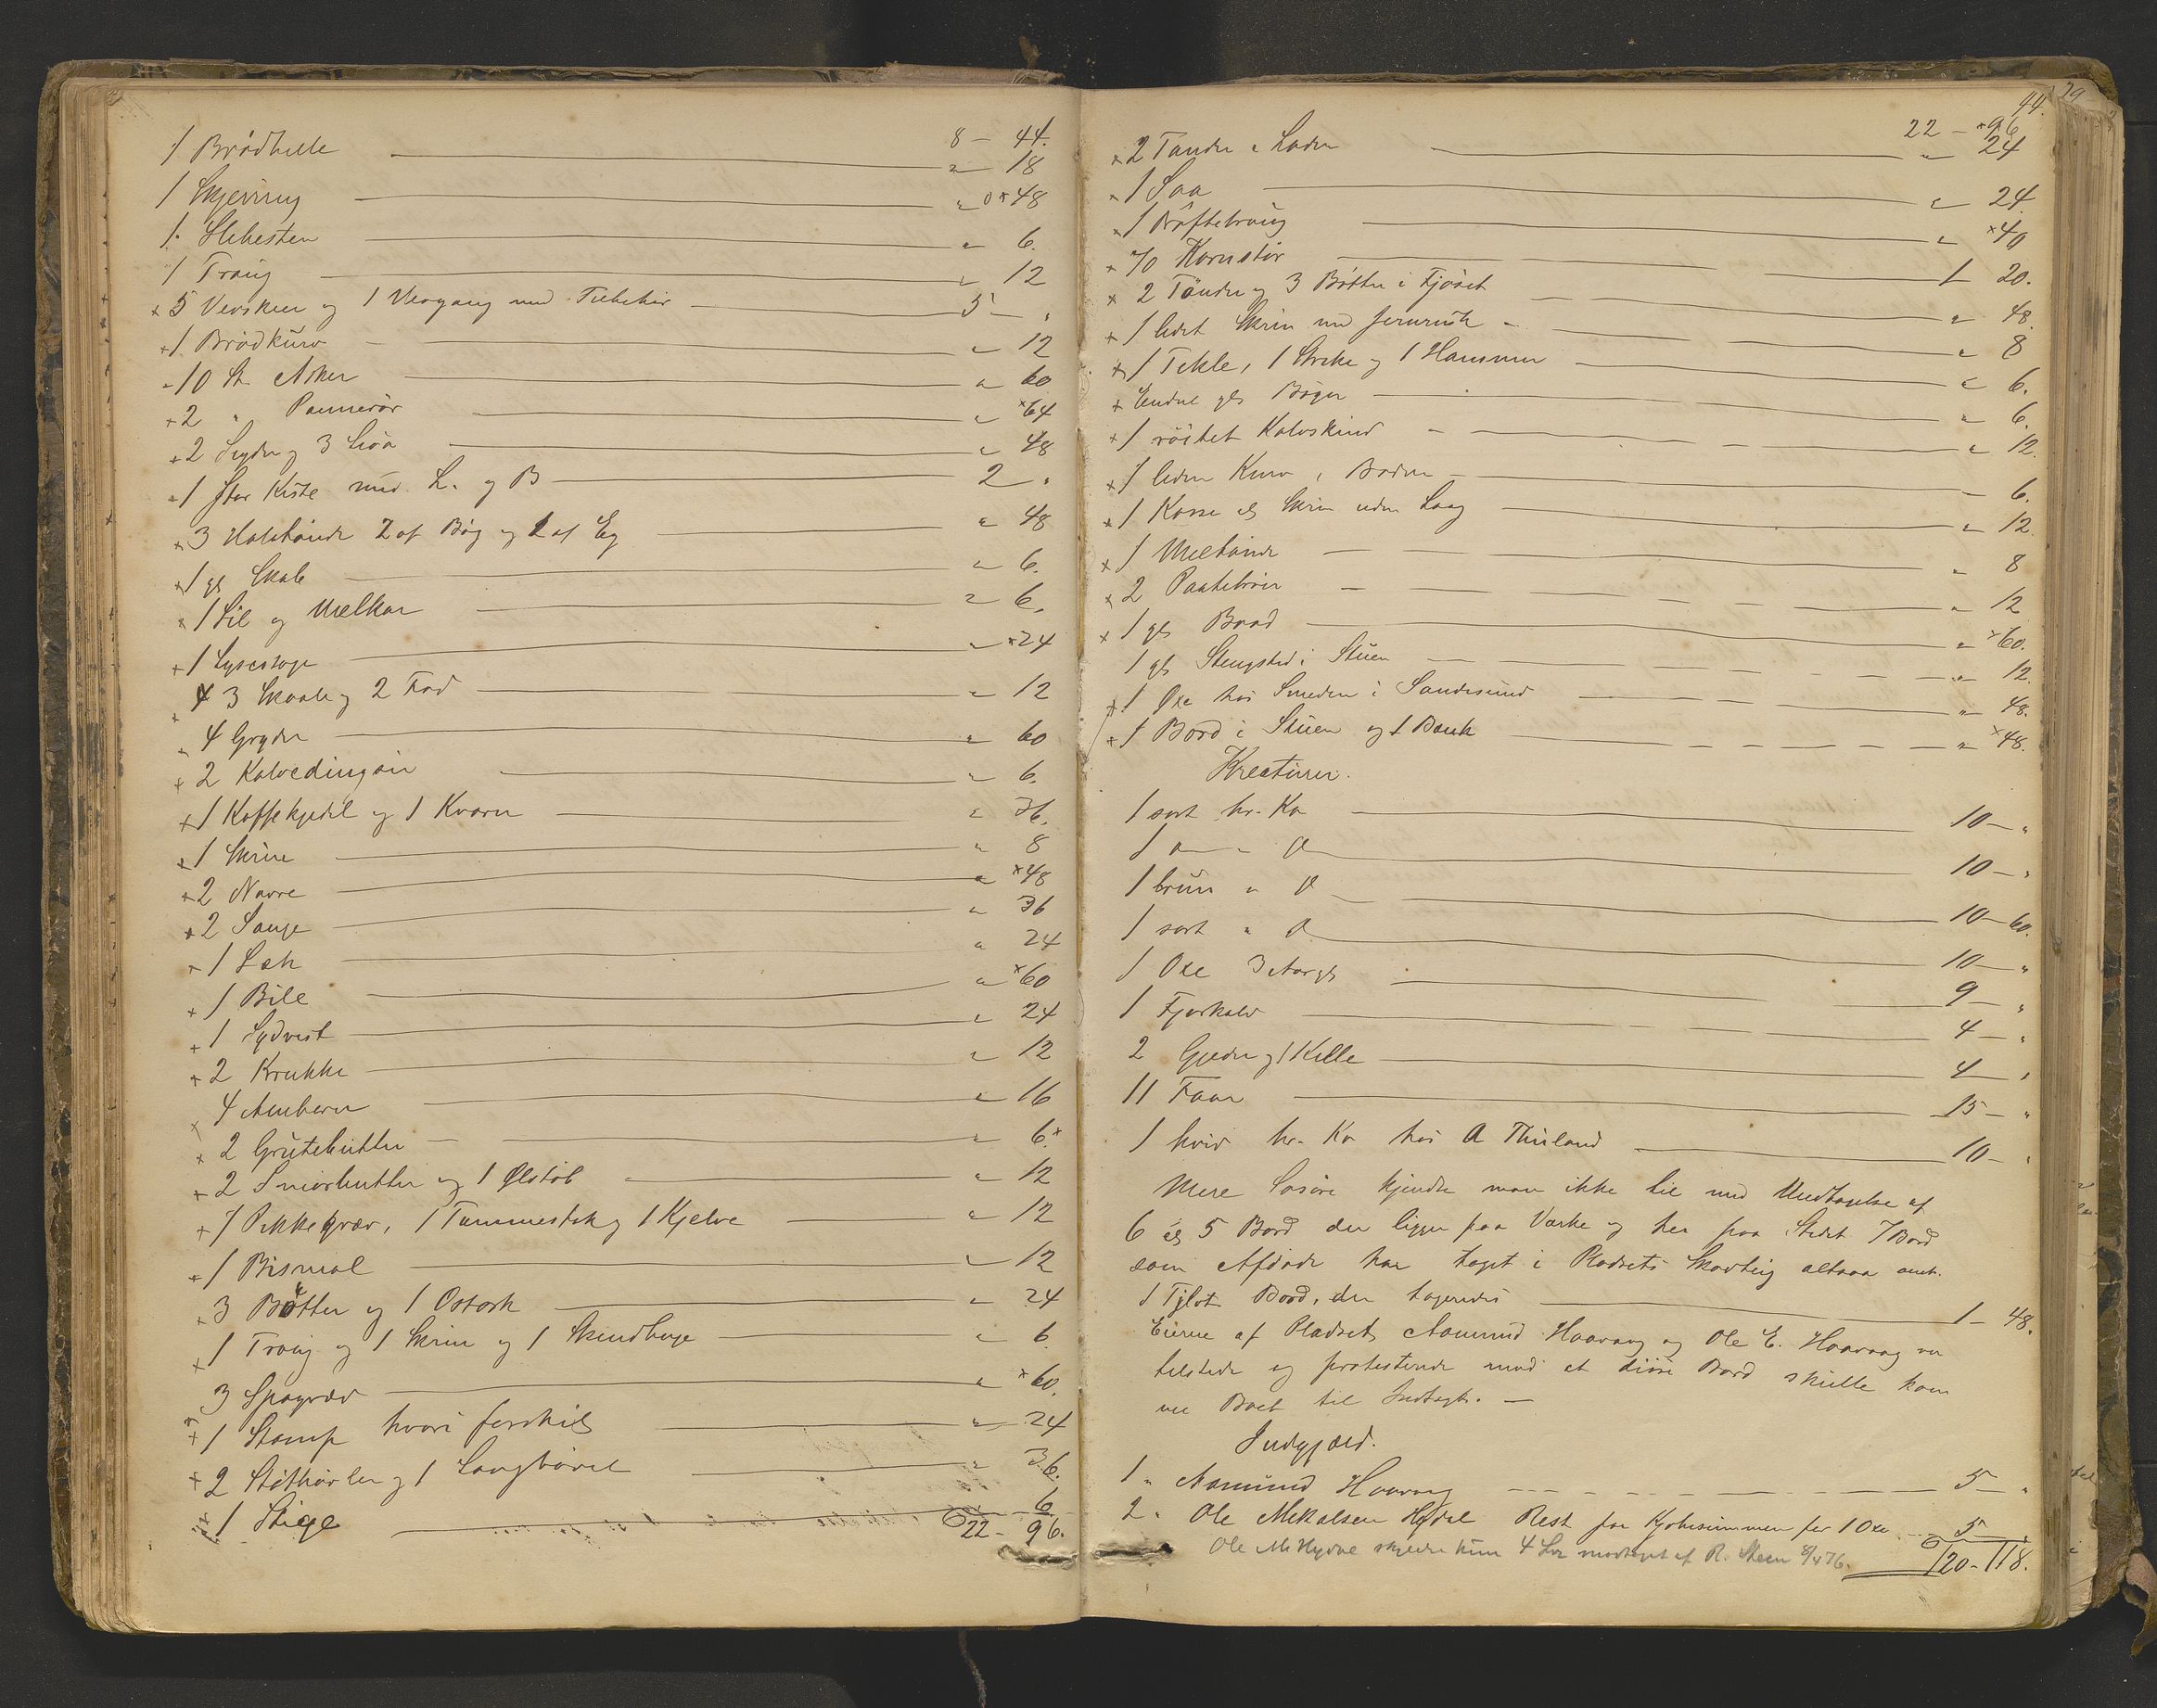 8 - 44.
1 Brødhelle " 18
1 Skjevring " 48
1 Slibesten " 6.
1 Traug " 12
5 Vævskeer og 1 Vævgang med Tilbehør 5 - "
1 Brødkurv " 12
10 St. Asker " 60
2 " Pannerør " 64
2 Sigder og 3 Ljaa " 48
1 stor Kiste med L. og B 2 "
3 Halvtønde 2 af Bøg og 1 af Eg " 48
1 gl Skab " 6.
1 Sil og Melkar " 6.
1 Lysesaxe " 24
3 Skaale og 2 Fad " 12
4 Gryder " 60
2 Kalvedingair " 6.
1 Kaffekjedel og 1 Kværn " 36.
1 Skrin " 8
2 Navre " 48
2 Sauge " 36
1 Lok " 24
1 Bile " 60
1 Sydvest " 24
2 Krukke " 12
4 Ambarer " 16
2 Grøtebutter " 6.
2 Smørbutter og 1 Ølstøb " 12
1 Tømmestok og 1 Kjelve " 12
1 Bismal " 12
3 Bøtter og 1 Ostask " 24
1 Traug og 1 Skrin og 1 Skindhuge " 6
3 Spagræv " 60.
1 Stamp hvori forskjel " 24
2 og 1 " 36.
1 Stige 6
22 - 96.
44.
22 - 96
2 Tønder i Laden " 24
1 Saa " 24.
1 Drøftetraug " 40
70 Kornstør 1 20.
2 Tønder og 3 Bøtter i Fjøset " 48.
1 lidet Skrin med Jernrusk " 8
1 Tekle, 1 og 1 Hammer " 6.
Endel gl Bøger " 6.
1 røitet Kalvskind " 12.
1 liden Kurv i Boden - 6.
1 Kasse el Skrin uden Laag " 12.
1 Meltønde " 8
2 " 12
1 gl Baad " 60.
1 gl Sengsted i Stuen " 12.
1 Øxe hos Smeden i Sandesund " 48.
1 Bord i Stuen og 1 Bænk " 48.
Kreaturer.
1 sort hr. Ko 10 - "
1 " 10 - "
1 brun " 10 - 60.
1 sort " 10 - "
1 Oxe 3 Aargl 9 - "
1 Fjorkalv 4 - "
2 Gjeder og 1 Kille 4 - "
11 Faar 15 - "
1 hvid hr. Ko hos A Thuland 10 - "
Mere Løsøre kjendte man ikke til med Undtagelse af
6 el 5 Bord der ligger paa Værke og her paa Stedet 7 Bord
som Afdøde har taget i Pladsets Skovteig altsaa omt.
1 Tylvt Bord, der tageredes 1 - 48.
Eierne af Pladset, Aamund Haavaag og Ole E. Haavaag var
tilstede og protesterede mod at disse Bord skulle kom
me Boet til Indtægt. -
Indgjæld.
1 " Aamund Haavaag 5 - "
2 " Ole Mikalsen Hydal Rest paa Kjøbesummen for 1 Oxe 5 - "
Ole M. Hydal skylder kun 4 modtaget af R. Steen 8/4 76. 120 - 118.